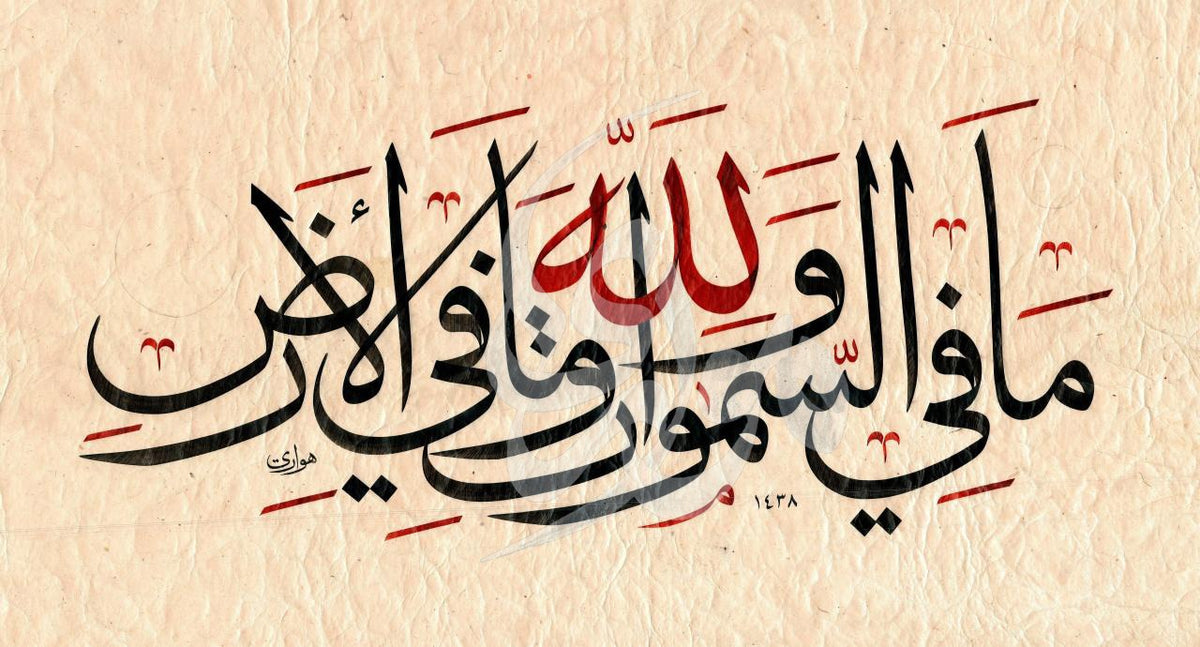 وَلِلَّهِ مَا فِي السَّمَوَاتِ وَمَا فِي الْأَرْضِ
هواري
١٤٣٨